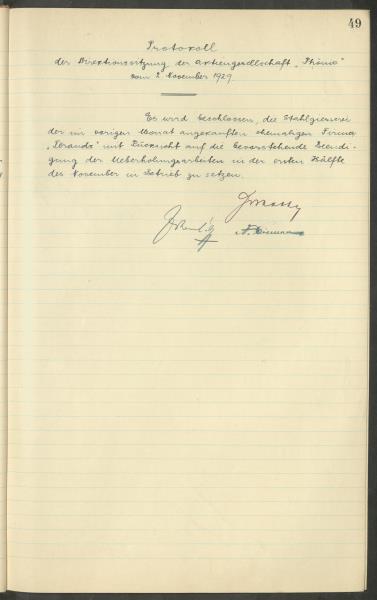 49
Protokoll
der Direktionssitzung der Aktiengesellschaft „Phönix"
vom 2. November 1929
Es wird beschlossen, die Stahlgiesserei
der im vorigen Monat angekauften ehemaligen Firma
mit Rücksicht auf die bevorstehende Beendi-
gung der Ueberholungsarbeiten in der ersten Hälfte
des November in Betrieb zu setzen.